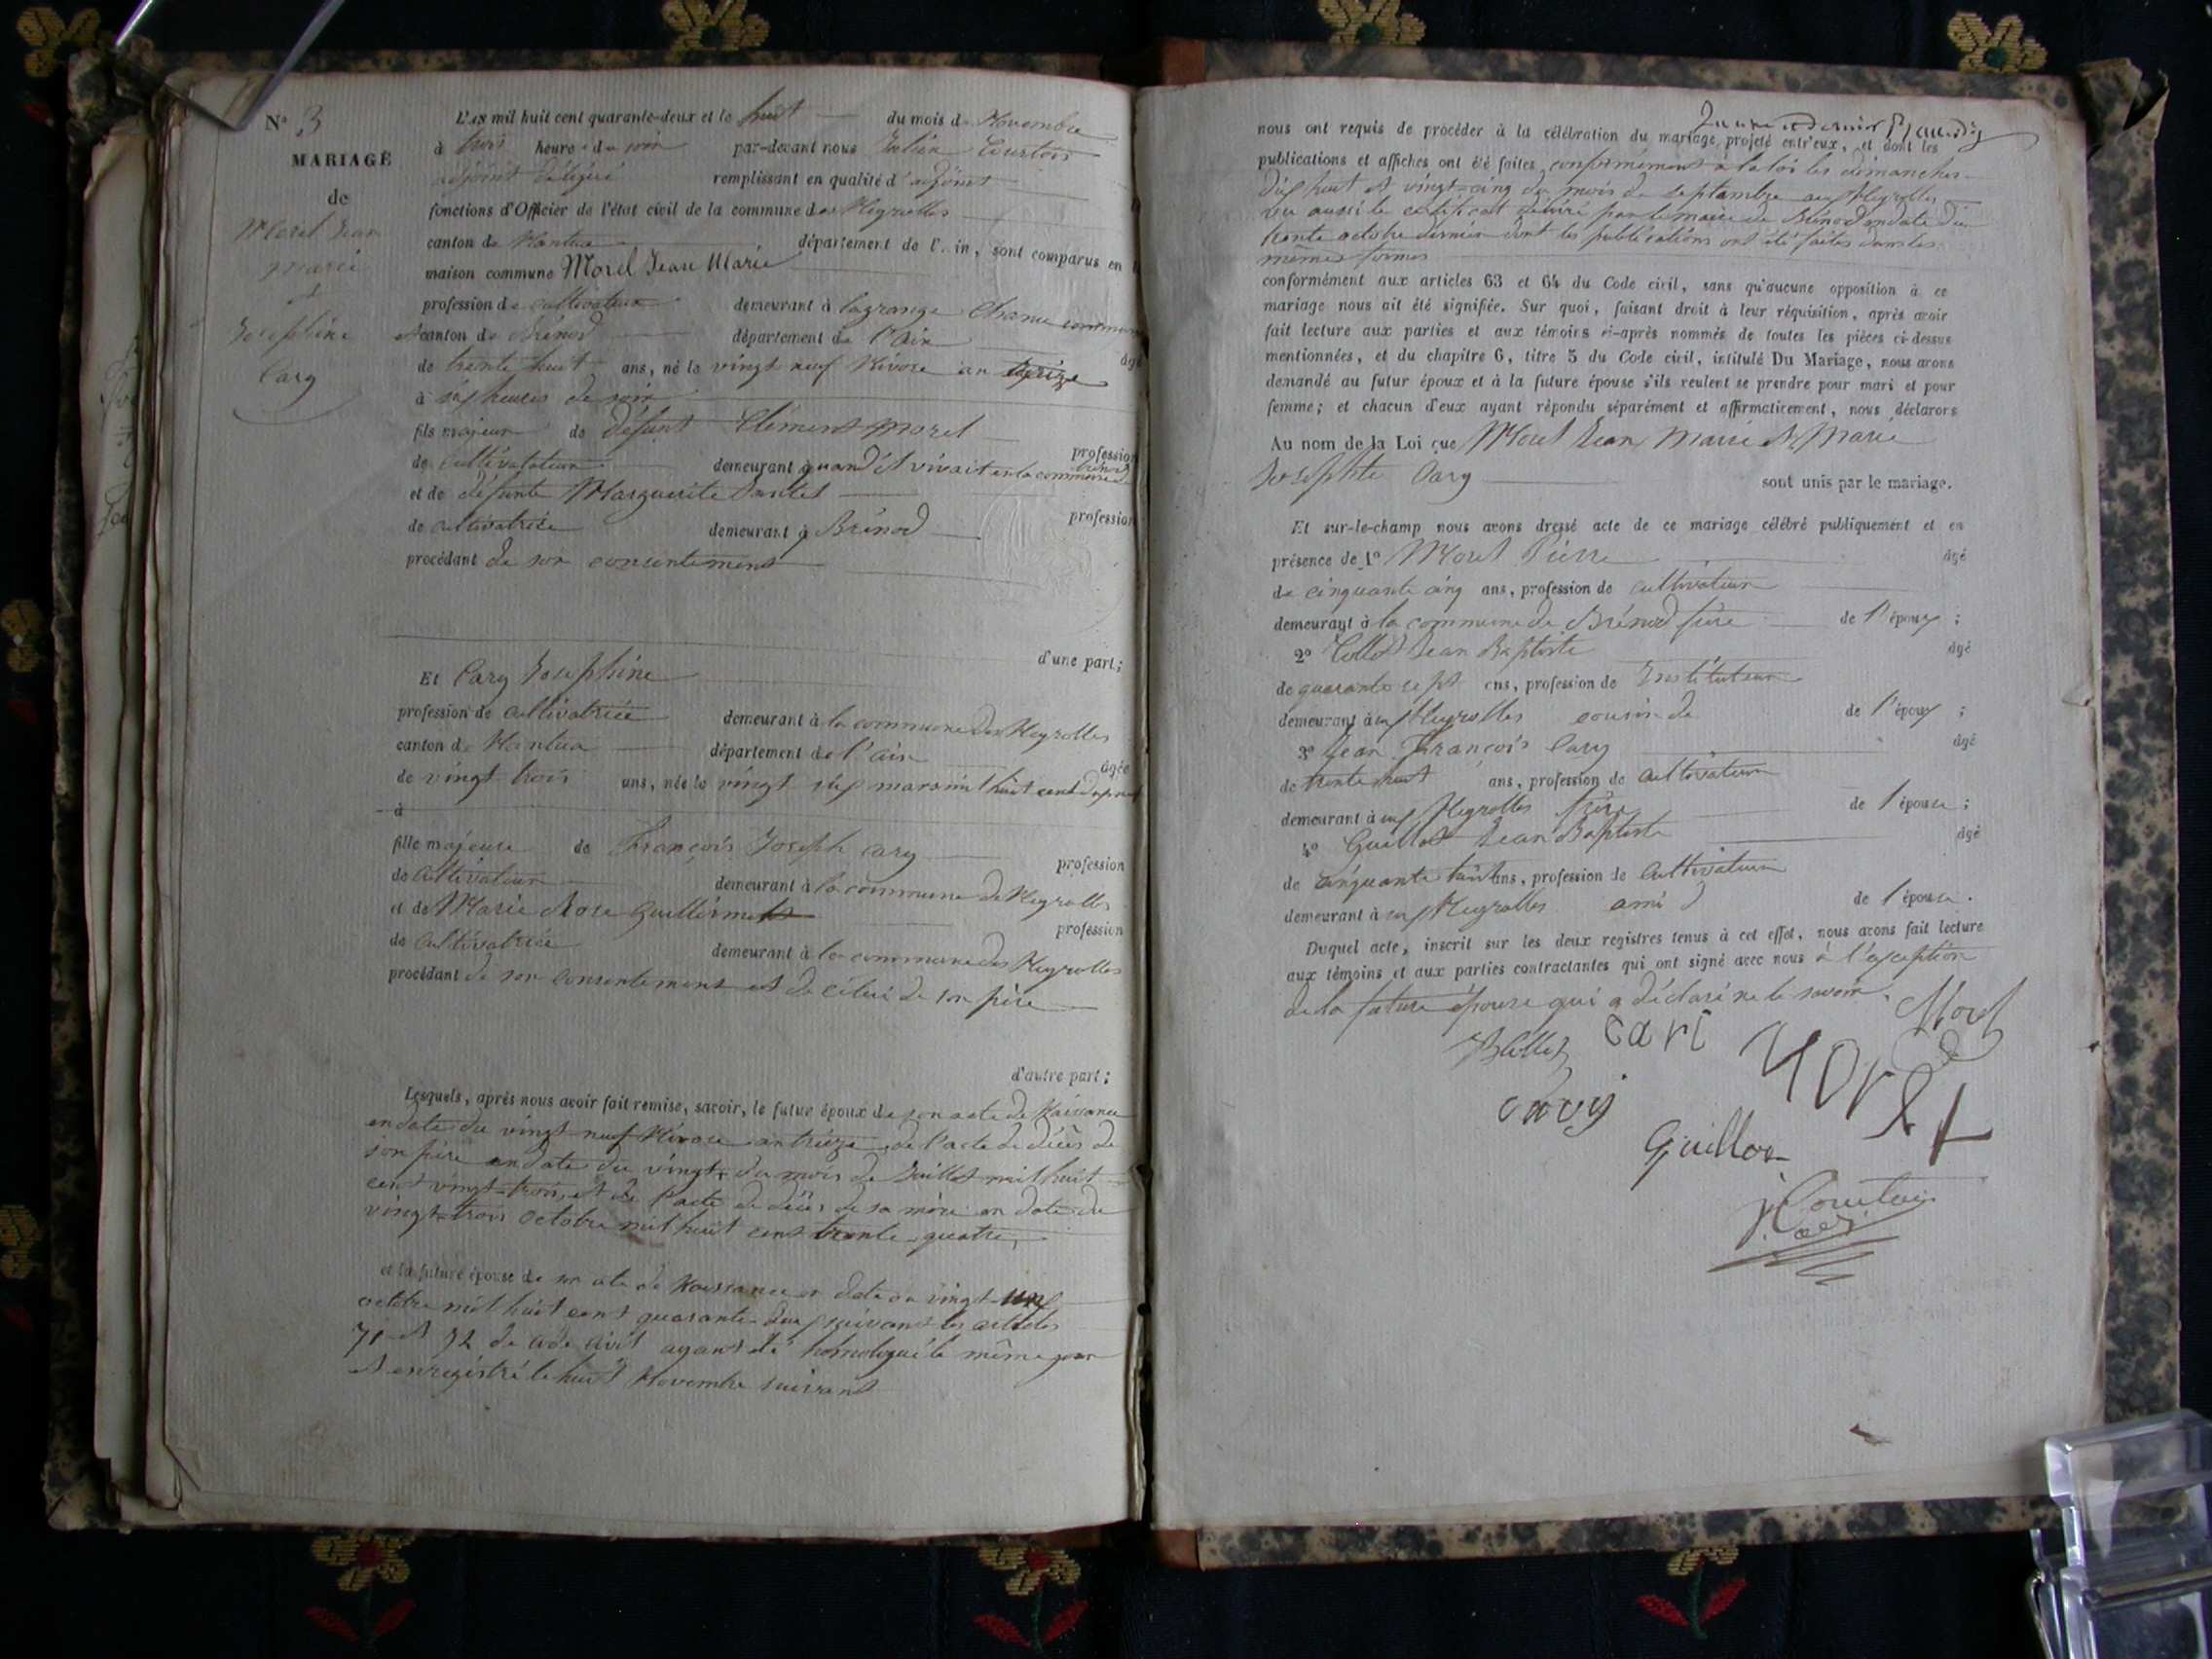 N° 3
MARIAGE
de
Morel Jean
marie
et
Josephine
Cary
L'AN mil huit cent quarante-deux et le huit du mois de Novembre
à trois heures du soir par-devant nous Julien Courtois
adjoint délégué remplissant en qualité d'adjoint
fonctions d'Officier de l'état civil de la commune des Neyrolles
canton de Nantua département de l'Ain, sont comparus en
maison commune Morel Jean Marie
profession de cultivateur demeurant à lagrange
canton de Brénod département de l'Ain âgé
de trente huit ans, né le vingt neuf Nivose an treize
à six heures du soir
fils majeur de défunt Clément Morel profession
de cultivateur demeurant quand il vivait en la commune de Brénod
et de défunte Marguerite profession
de cultivatrice demeurant à Brénod
procédant de son consentement
d'une part;
Et Cary Josephine
profession de cultivatrice demeurant à la commune des Neyrolles
canton de Nantua département de l'ain âgée
de vingt trois ans, née le vingt six mars mil huit cent dix neuf
à
fille majeure de François Joseph Cary profession
de cultivateur demeurant à la commune des Neyrolles
et de Marie Rose Guillermet profession
de cultivatrice demeurant à la commune des Neyrolles
procédant de son consentement et de celui de son père
d'autre part;
Lesquels, après nous avoir fait remise, savoir, le futur époux de son acte de Naissance
en date du vingt neuf Nivose an treize, de l'acte de décès de
son père en date du vingt du mois de Juillet mil huit
cent vingt-trois, et de l'acte de décès de sa mère en date du
vingt-trois octobre mil huit cent trente quatre,
et la future épouse de son acte de Naissance en date du vingt
octobre mil huit cent quarante deux suivant les articles
71 et 72 du code civil ayant été homologué le même jour
et enregistré le huit Novembre suivant
nous ont requis de procéder à la célébration du mariage projeté entr'eux, et dont les
publications et affiches ont été faites conformément à la loi les dimanches
dix huit et vingt-cinq du mois de septembre aux Neyrolles
vu aussi le certificat délivré par le maire de Brénod en date du
trente octobre dernier dont les publications ont été faites dans les
mêmes formes
conformément aux articles 63 et 64 du Code civil, sans qu'aucune opposition à ce
mariage nous ait été signifiée. Sur quoi, faisant droit à leur réquisition, après avoir
fait lecture aux parties et aux témoins ci-après nommés de toutes les pièces ci-dessus
mentionnées, et du chapitre 6, titre 5 du Code civil, intitulé Du Mariage, nous avons
demandé au futur époux et à la future épouse s'ils veulent se prendre pour mari et pour
femme; et chacun d'eux ayant répondu séparément et affirmativement, nous déclarons
Au nom de la Loi que Morel Jean Marie et Marie
Josephte Cary sont unis par le mariage.
Et sur-le-champ nous avons dressé acte de ce mariage célébré publiquement et en
présence de 1° Morel Pierre âgé
de cinquante cinq ans, profession de cultivateur
demeurant à la commune de Brénod frère de l'époux;
2° Collet Jean Baptiste âgé
de quarante sept ans, profession de Instituteur
demeurant à aux Neyrolles cousin de de l'époux;
3° Jean François Cary âgé
de trente huit ans, profession de cultivateur
demeurant à aux Neyrolles frère de l'épouse;
4° Guillot Jean Baptiste âgé
de cinquante huit ans, profession de cultivateur
demeurant à aux Neyrolles ami de l'épouse.
Duquel acte, inscrit sur les deux registres tenus à cet effet, nous avons fait lecture
aux témoins et aux parties contractantes qui ont signé avec nous à l'exception
de la future épouse qui a déclaré ne le savoir.
Morel
Collet
Cari
Morel
cary
Guillot
J. Courtois